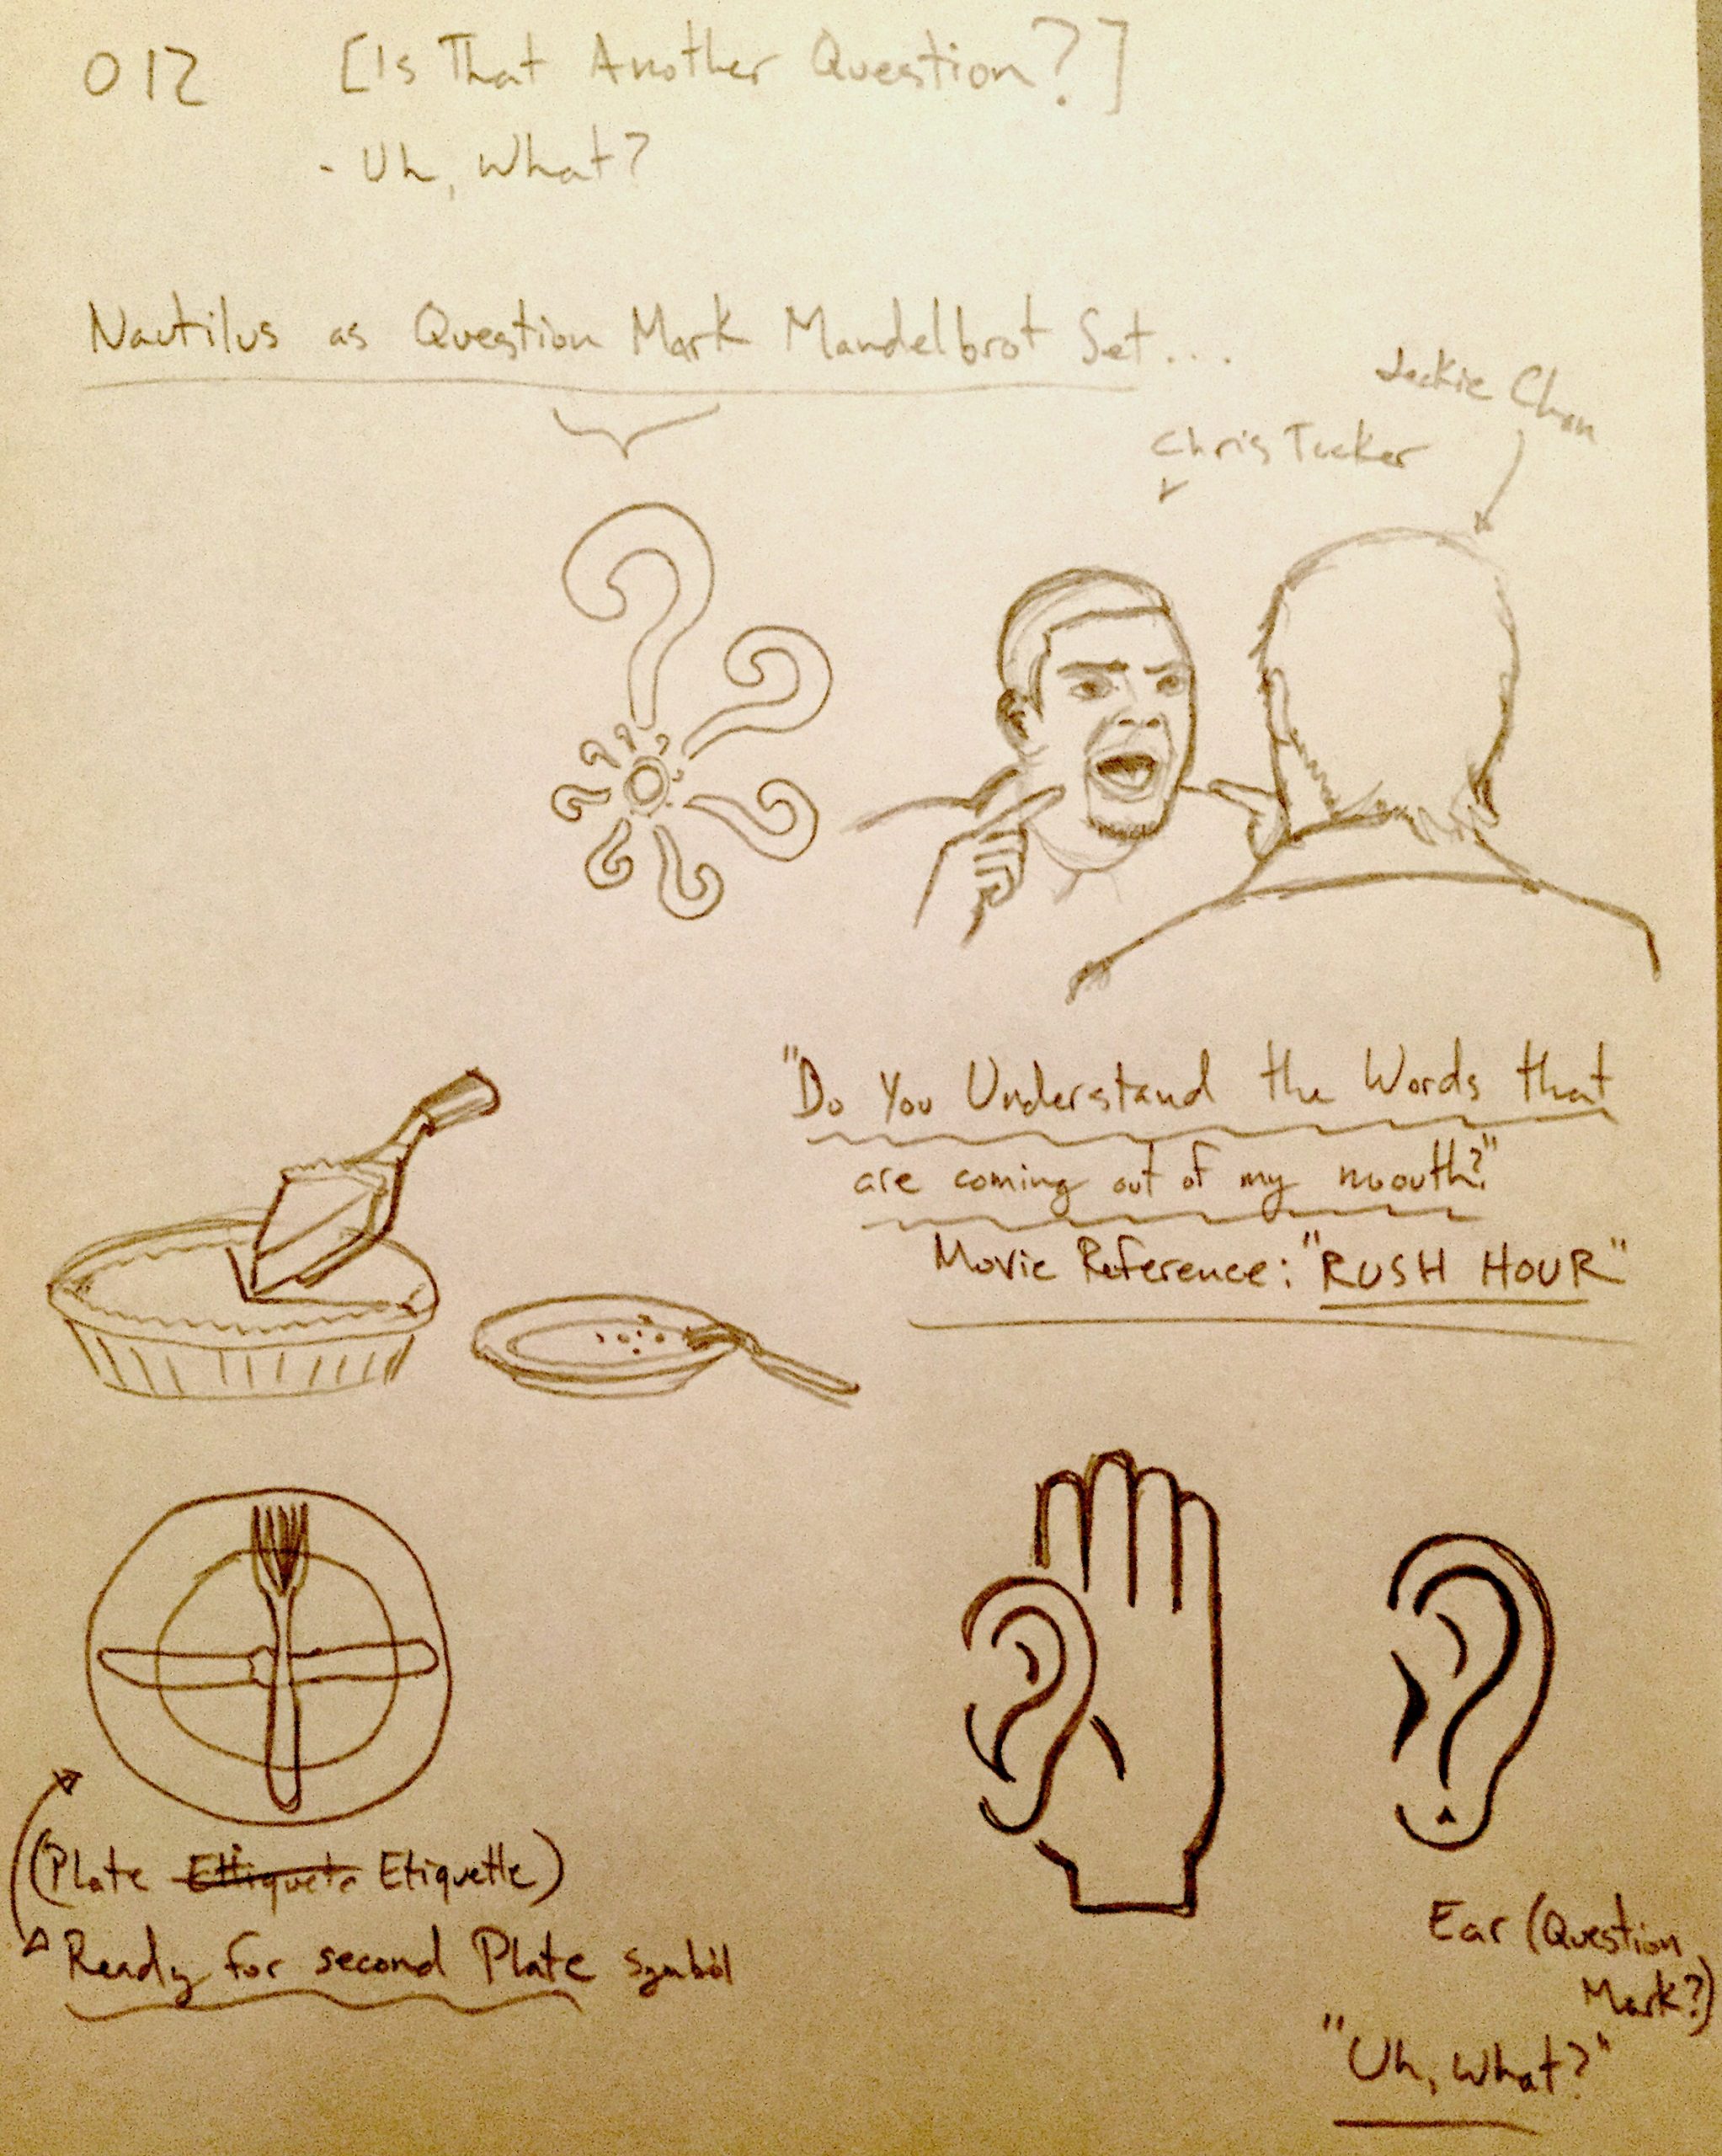 012 [Is That Another Question?]
- Uh, What?
Nautilus as Question Mark Mandelbrot Set...
Jackie Chan
Chris Tucker
"Do You Understand the Words that
are coming out of my moouth?"
Movie Reference: "RUSH HOUR"
(Plate Ettiquete Etiquette)
Ready for second Plate symbol
Ear (Question
Mark?)
"Uh, What?"